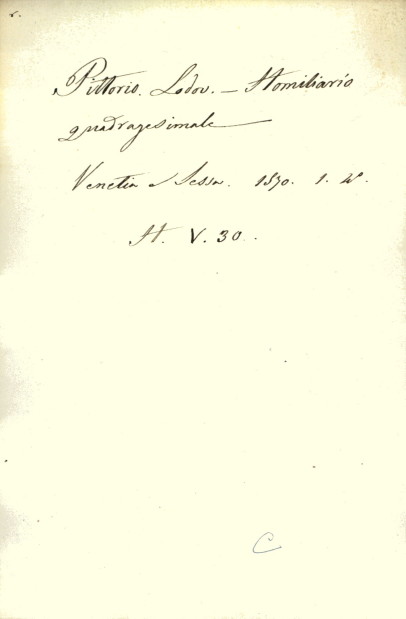 Pittorio. Lodov. — Homiliario
quadragesimale
Venetia Sessa. 1570. 1. 4°.
H. V. 30.
C